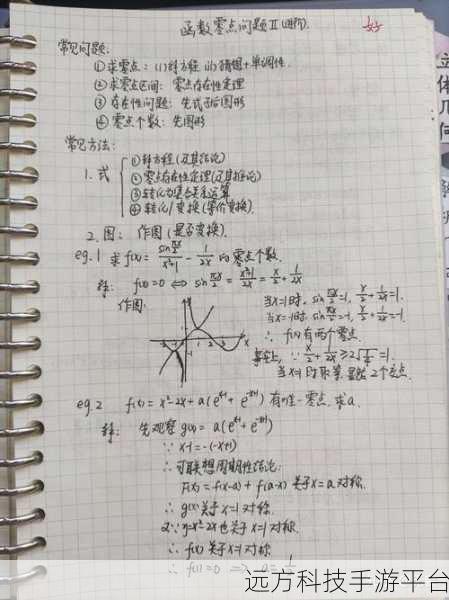 函数零点问题Ⅱ(进阶)
常见问题:
① 求零点: (1)解方程 (2)猜根+单调性
② 求零点区间: 零点存在性定理
③ 存在性问题: 先式子后图形
④ 零点个数: 先图形
常见方法:
1. 式
① 解方程(及其结论)
② 零点存在性定理(及其推论)
③ 转化为集合关系运算
④ 转化/变换(等价变换)
2. 图: 作图(是否变换)
eg.1 求f(x)= sin(πx/2)/(x²+1) - 1/(2x) 的零点个数.
解: f(x)=0 ⇔ sin πx/2 = (x²+1)/(2x) = x/2 + 1/(2x)
作图:
当x=1时, sin πx/2=1, x/2+1/(2x)=1.
当x=-1时 sin πx/2=-1, x/2+1/(2x)=-1.
∴ f(x)有两个零点.
事实上, ∵ x/2+1/(2x)≥2√(1/4)=1.
当x=1时取等 2个交点
eg.2 f(x)=x²-2x+a(e^(x-1)+e^(-x+1))有唯一零点,求a.
解: 先观察 g(x)=a(e^(x-1)+e^(-x+1))
∵ x-1=-(-x+1)
∴可联想周期性结论:
F(x)=f(x-a)+f(a-x)关于x=a对称.
∴ g(x)关于x=1对称.
又∵y=x²-2x也关于x=1对称.
∴ f(x)关于x=1对称
∴ f(1)=0 ⇒ a=1/
立体几何
远方科技手游平台